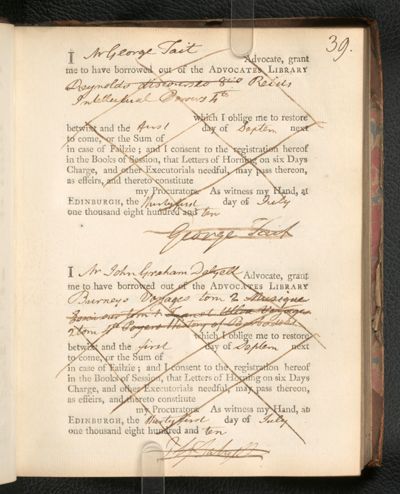 39.
I Mr George Tait Advocate, grant
me to have borrowed out of the ADVOCATES LIBRARY
Reynolds discourses 8vo Reids
Intellectual Powers 4to
which I oblige me to restore
betwixt and the first day of Septem next
to come, or the Sum of
in case of Failzie; and I consent to the registration hereof
in the Books of Session, that Letters of Horning on six Days
Charge, and other Executorials needful, may pass thereon,
as effeirs, and thereto constitute
my Procurators. As witness my Hand, at
EDINBURGH, the thirty first day of July
one thousand eight hundred and ten
George Tait
I Mr John Graham Dalyell Advocate, grant
me to have borrowed out of the ADVOCATES LIBRARY
Burneys Voyages tom 2 Musique
tom 1
2 tom 4to Poyers History of Barbadoes
which I oblige me to restore
betwixt and the first day of Septem next
to come, or the Sum of
in case of Failzie; and I consent to the registration hereof
in the Books of Session, that Letters of Horning on six Days
Charge, and other Executorials needful, may pass thereon,
as effeirs, and thereto constitute
my Procurators. As witness my Hand, at
EDINBURGH, the thirty first day of July
one thousand eight hundred and ten